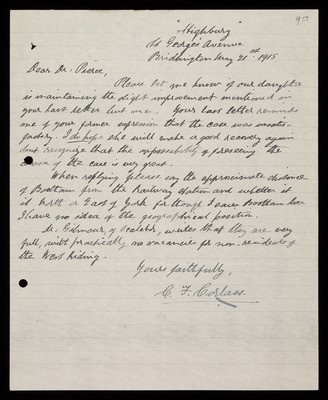 "Highbury"
St George's Avenue
Bridlington May 21st 1915
Dear Dr. Pierce,
Please let me know if our daughter
is maintaining the slight improvement mentioned in
your last letter but one. Your last letter reminds
me of your former expression that the case was unsatis-
factory. I do hope she will make a good recovery again
but recognize that the responsibility of presetting the
of the case is very great.
When replying please say the approximate distance
of Bootham from the Railway station and whether it
is North or East of York for though I know Bootham
I have no idea of the geographical position.
Mr. Gilmour, of Scalebor, writes that they are very
full, with practically no vacancies for non-residents of
the West Riding.
Yours faithfully,
C. F. Corlass.